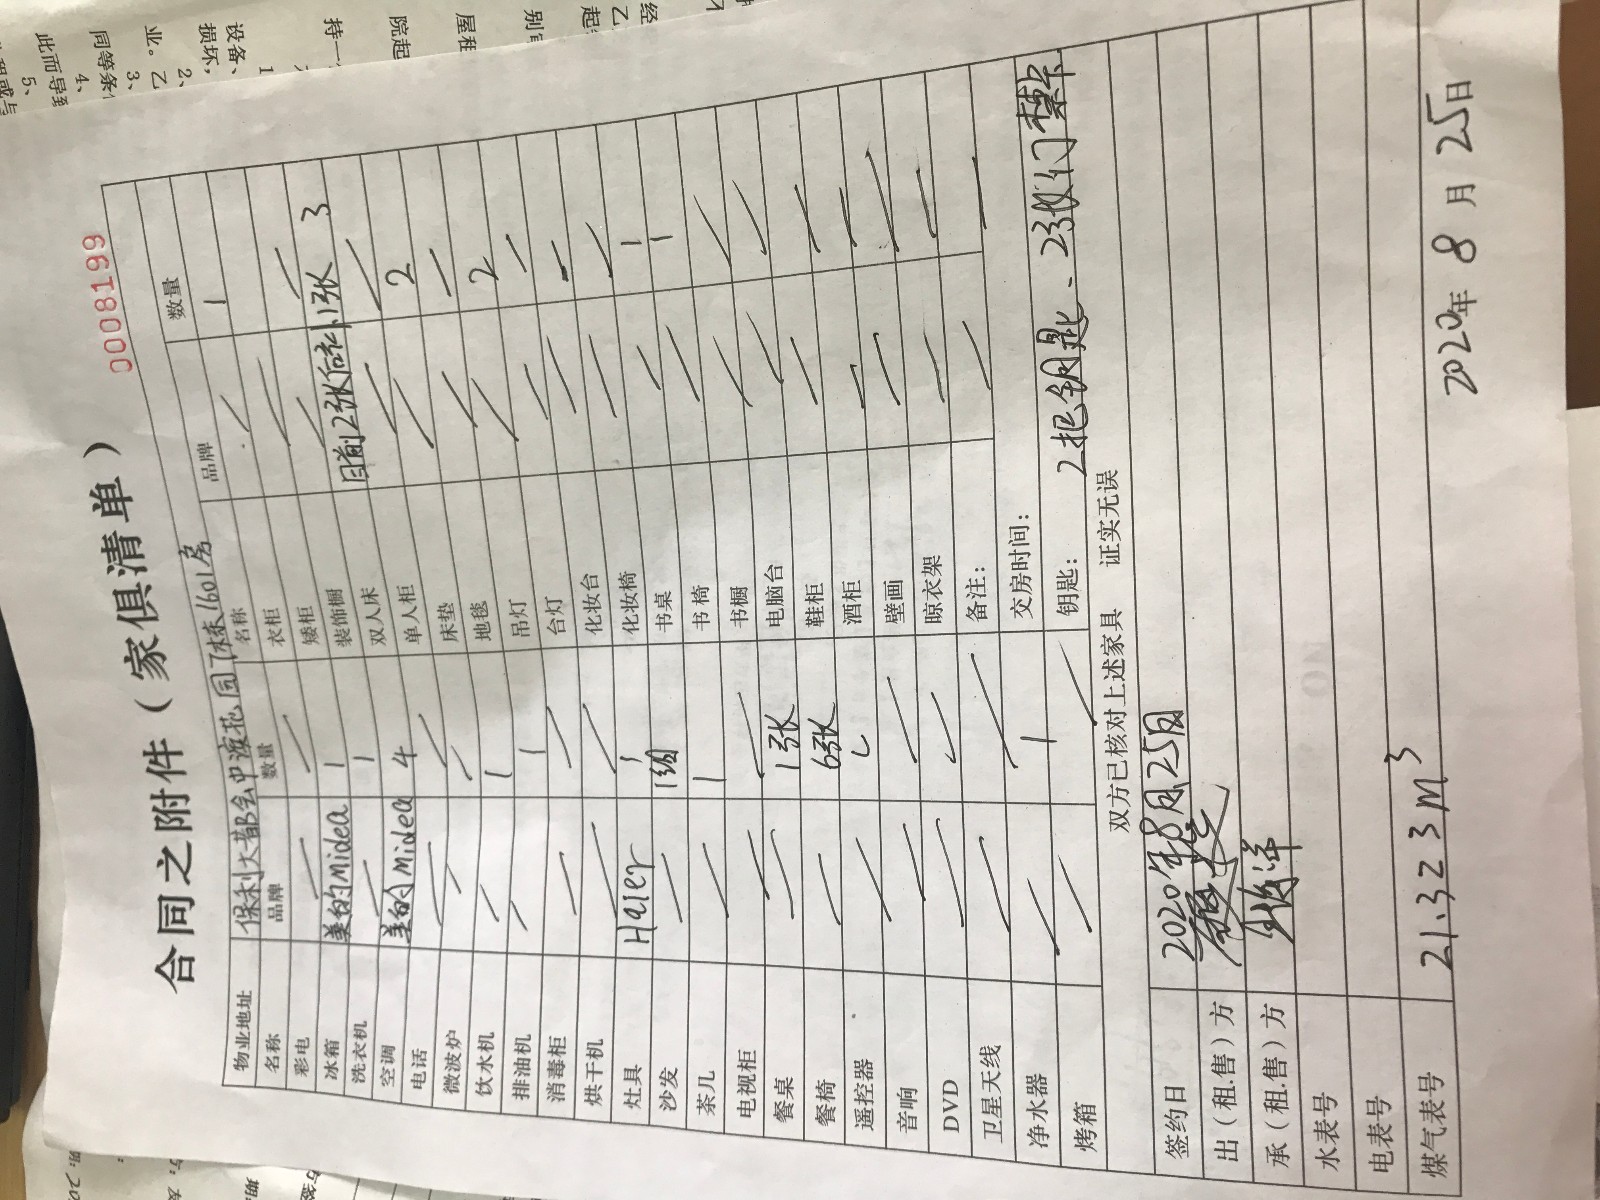 0008199
合同之附件（家俱清单）
物业地址 保利大都会中海花园 1601房
名称 品牌 数量 名称 品牌 数量
彩电 衣柜 1
冰箱 美的Midea 1 矮柜
洗衣机 1 装饰橱
空调 美的Midea 4 双人床 目前2张后补1张 3
电话 单人柜
微波炉 床垫 2
饮水机 1 地毯
排油机 1 吊灯 2
消毒柜 台灯
烘干机 化妆台
灶具 Haier 1 化妆椅
沙发 1组 书桌 1
茶几 1 书椅 1
电视柜 书橱
餐桌 1张 电脑台
餐椅 6张 鞋柜
遥控器 酒柜
音响 壁画
DVD 晾衣架
卫星天线 备注：
净水器 1 交房时间：
烤箱 钥匙： 2把钥匙、2张门禁卡
双方已核对上述家具 证实无误
签约日 2020年8月25日
出（租.售）方
承（租.售）方
水表号
电表号
煤气表号 21.323m³
2020年8月25日